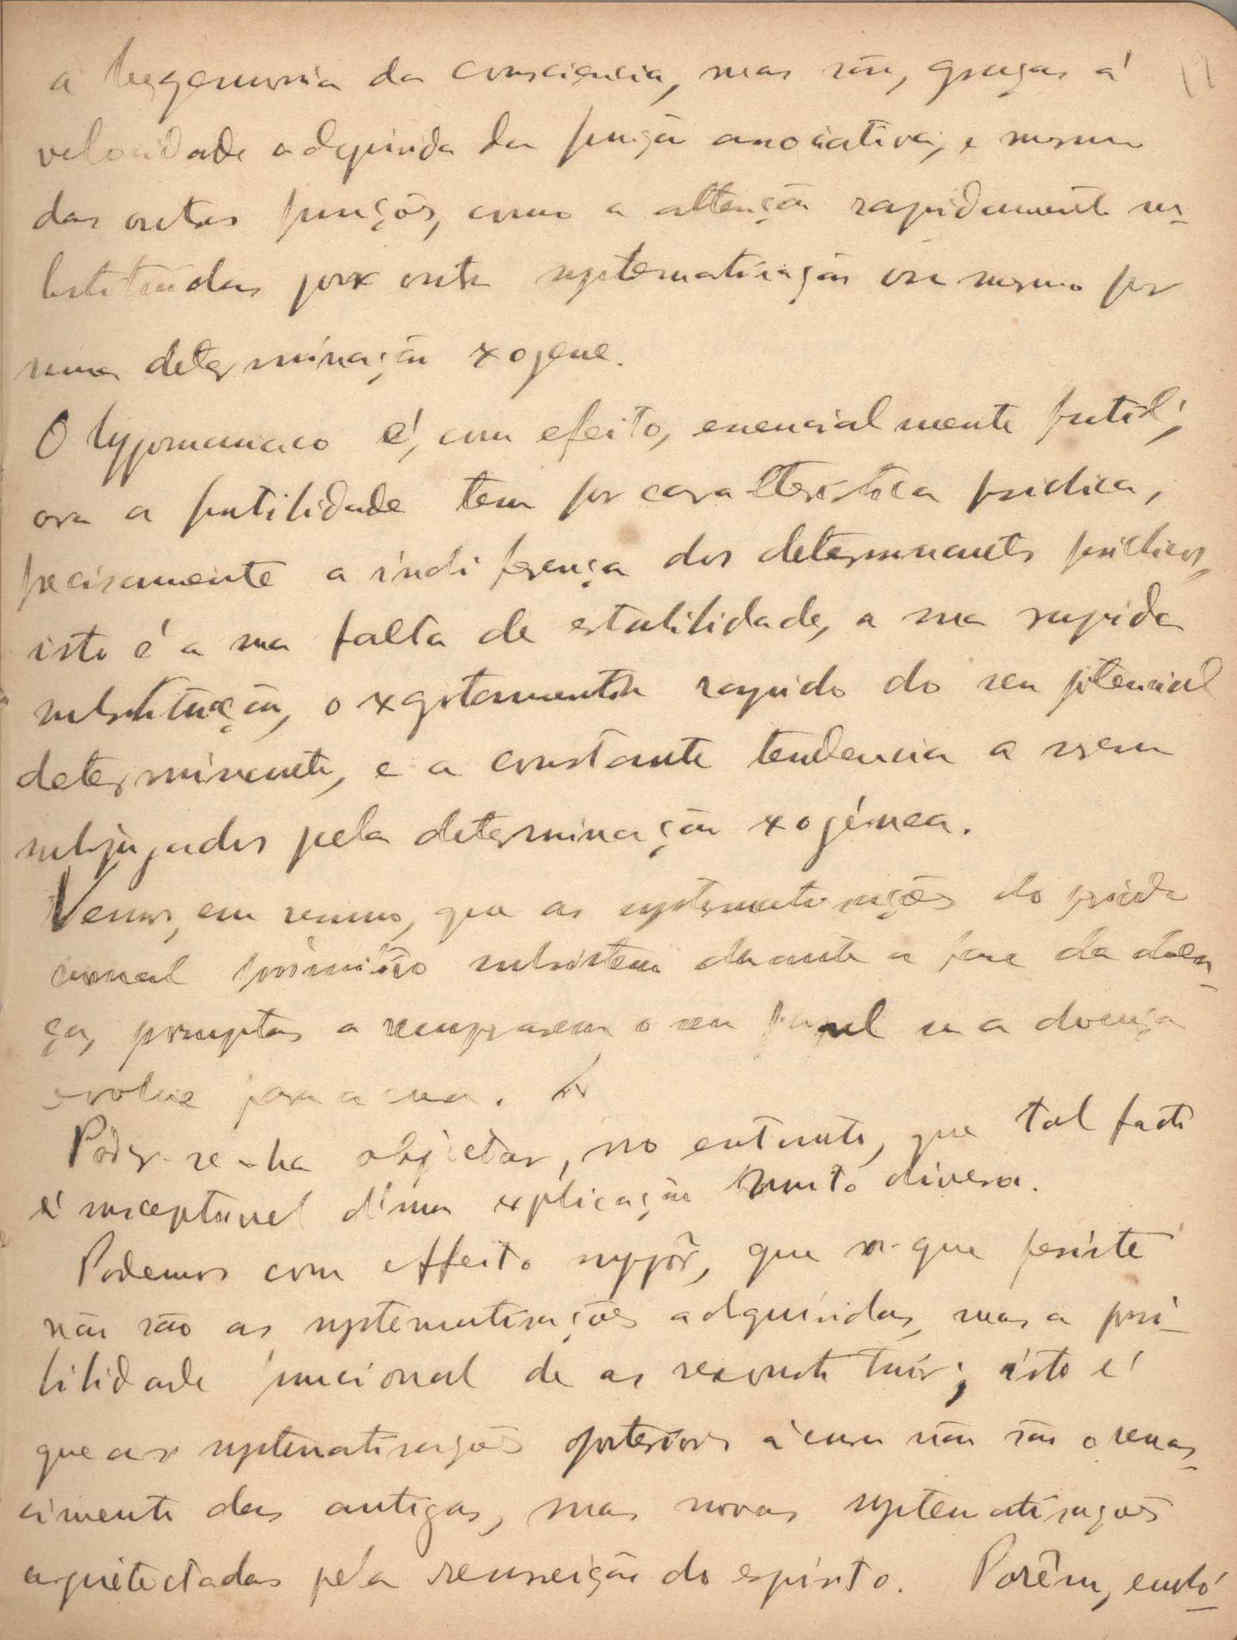 a hegemonia da consciencia, mas são, graças á
velocidade adquirida da função associativa, e mesmo
das outras funções, como a attenção rapidamente su-
bstituidas por outra systematisação ou mesmo por
uma determinação xogene.
O hypomaniaco é, com efeito, essencialmente futil;
ora a futilidade tem por caracteristica psidica,
precisamente a indiferença dos determinantes psidicos,
isto é a sua falta de estabilidade, a sua rapida
substituição, o xgotamento rapido do seu potencial
determinante, e a constante tendencia a serem
subjugados pela determinação xogénea.
Vemos, em resumo, que as systematisações do
normal primitivo subsistem durante a fase da doen-
ça, promptas a recuperarem o seu papel se a doença
evolue para a cura.
Poder-se-ha objectar, no entanto, que tal facto
é susceptivel d'uma xplicação muito diversa.
Podemos com effeito suppôr, que o que persiste
não são as systematisações adquiridas, mas a possi-
bilidade funcional de as reconstituir; isto é
que as systematisações posteriores á cura não são o renas-
cimento das antigas, mas novas systematisações
arquitectadas pela ressurreição do espirito. Porêm, embó-